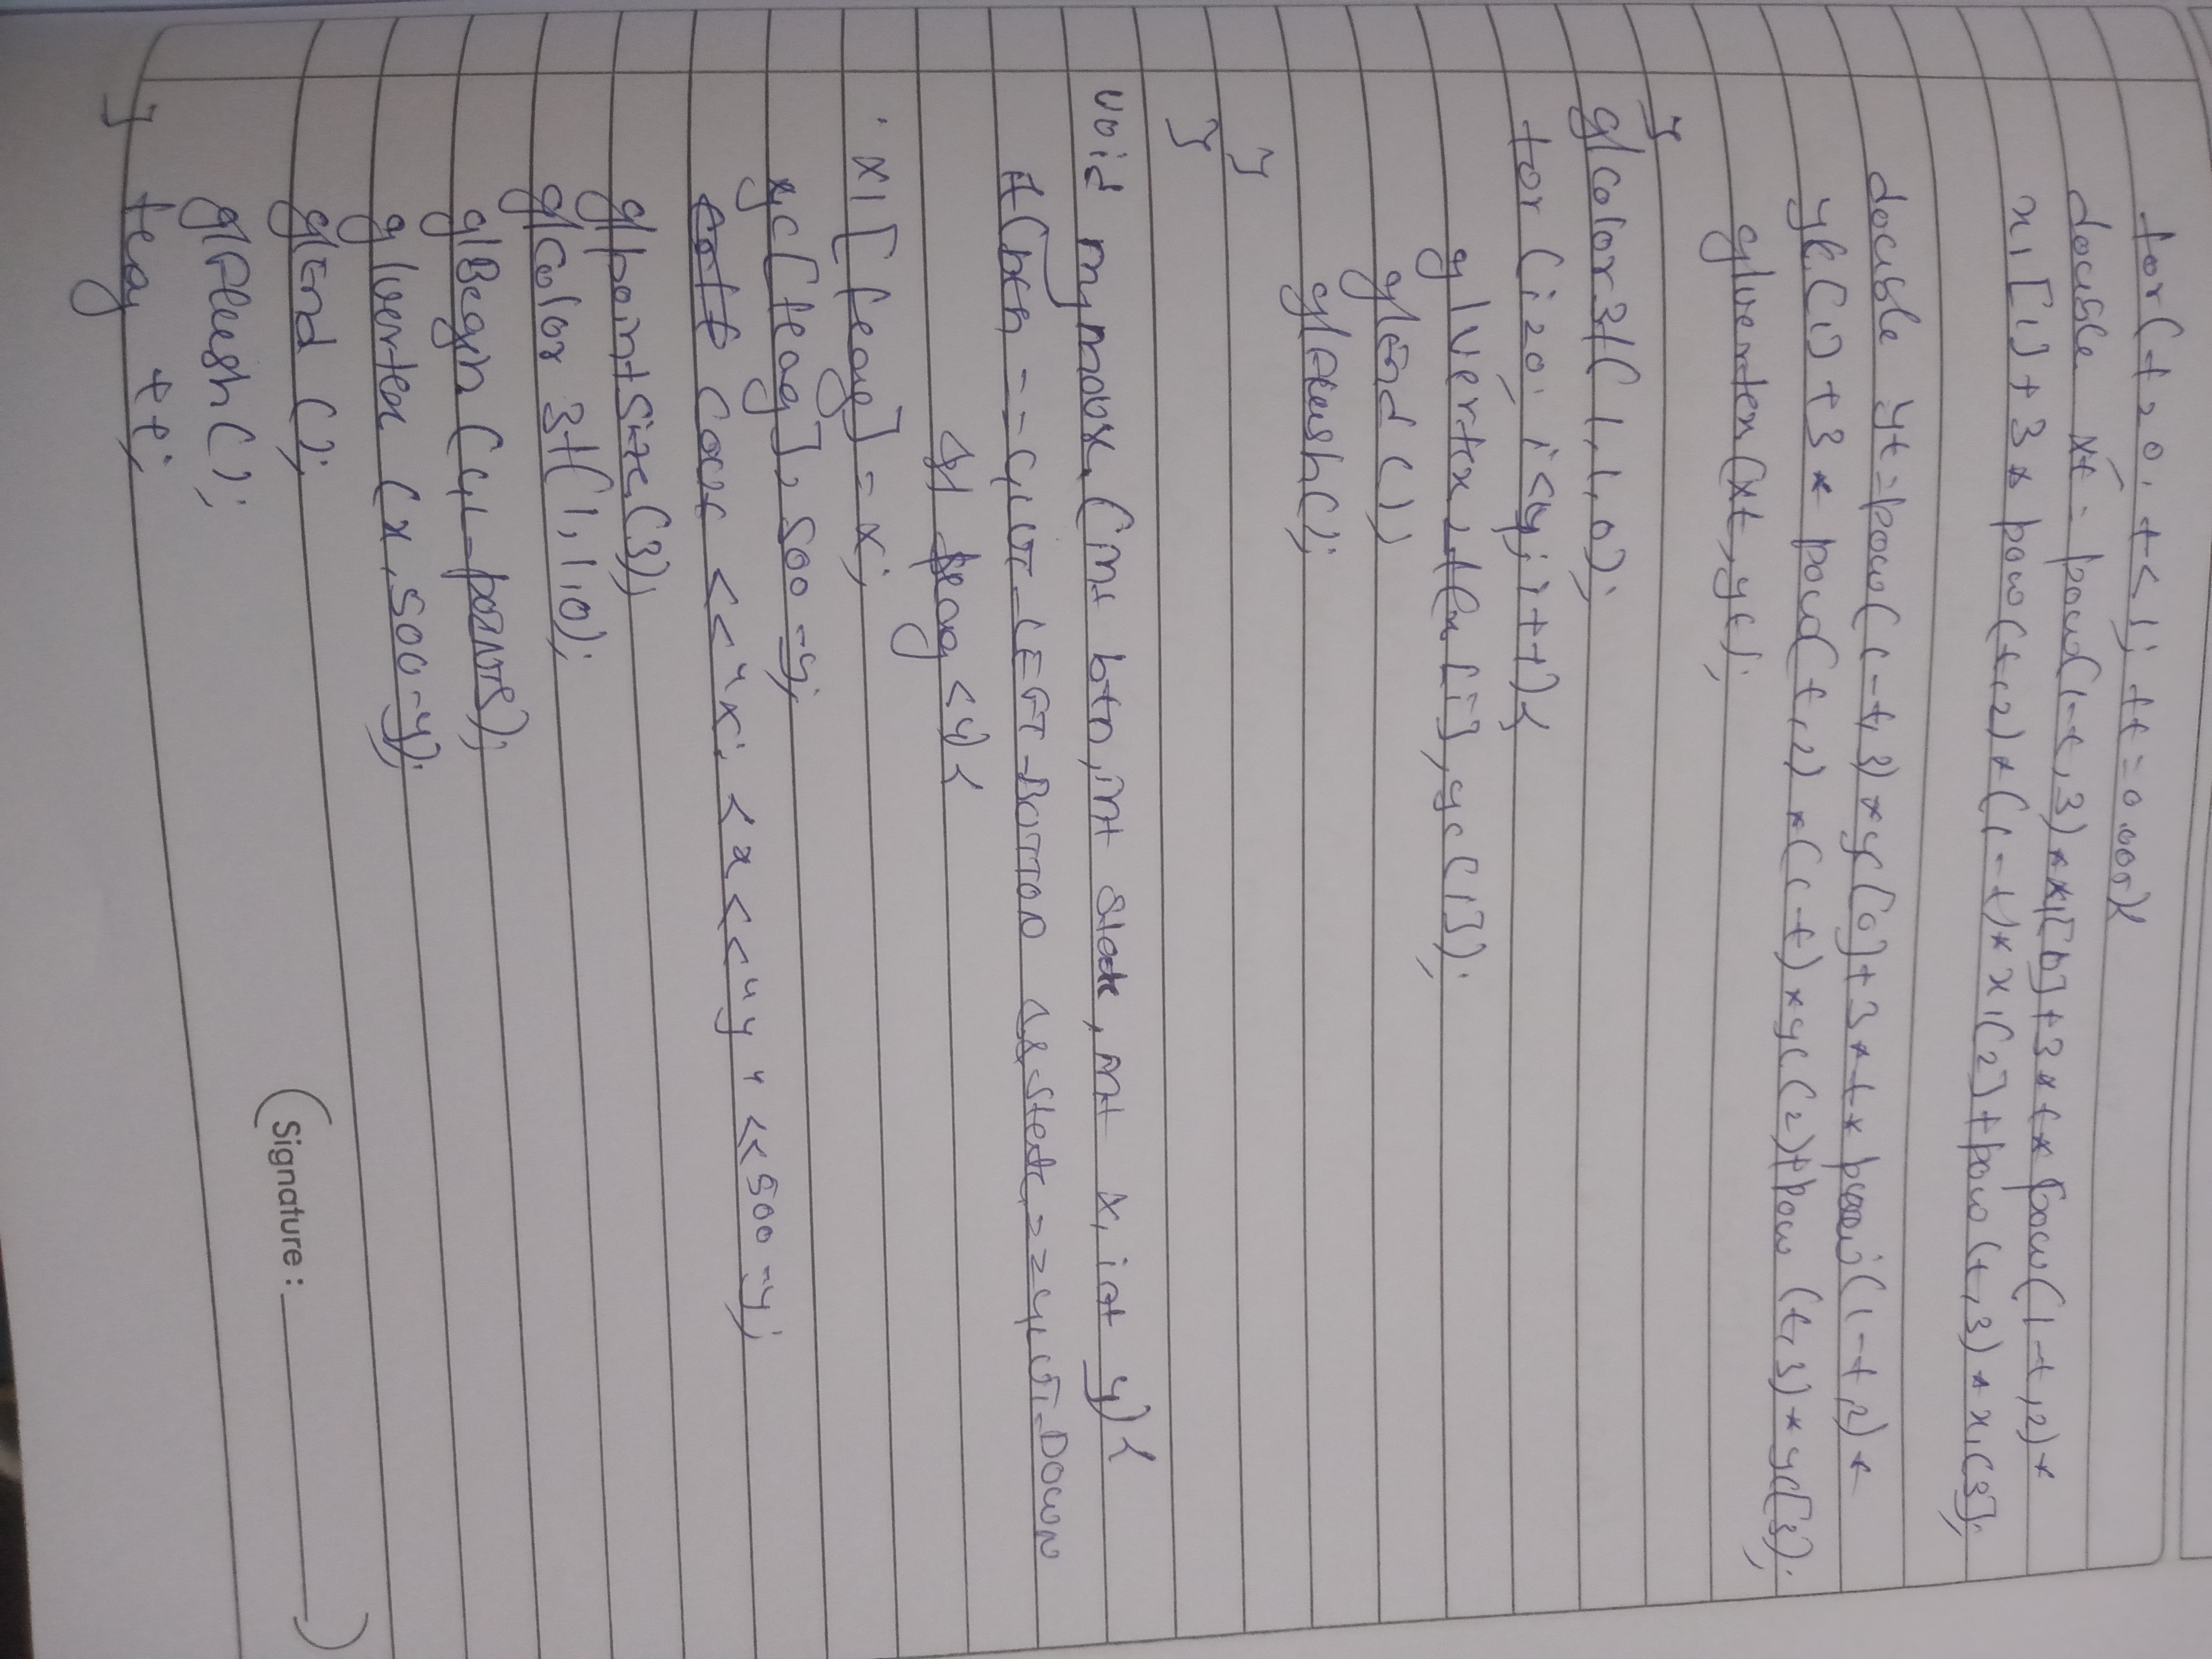 for(t=0, t<1; t+=0.001){
double xt = pow(1-t,3)*x1[0]+3*t*pow(1-t,2)*
x1[1]+3*pow(t,2)*(1-t)*x1[2]+pow(t,3)*x1[3];
double yt=pow(1-t,3)*yc[0]+3*t*pow(1-t,2)*
yc[1]+3*pow(t,2)*(1-t)*yc[2]+pow(t,3)*yc[3];
glvertex(xt,yt);
}
glColor3f(1,1,0);
for(i=0; i<4; i++){
glvertex2f(x[i],yc[i]);
glEnd();
glFlush();
}
}
void mymouse(int btn,int state,int x,int y){
if(btn==GLUT_LEFT_BOTTOM && state==GLUT_DOWN
&& flag<4){
x1[flag]=x;
yc[flag], 500-y;
cout <<"x: <x<<"y" <<500-y;
glpointSize(3);
glColor3f(1,1,0);
glBegin(GL_POINTS);
glvertex(x,500-y);
glEnd();
glFlush();
} flag ++;
(Signature: )